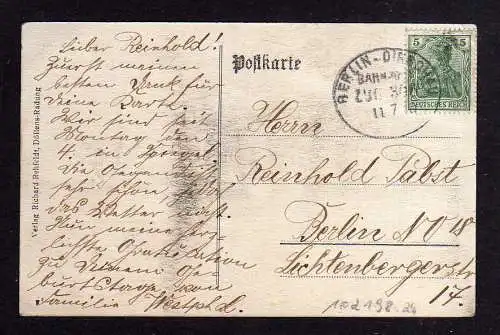 Lieber Reinhold!
Zuerst meinen
besten Dank für
deine Karte.
Wir sind seit
Montag den
4. in
Die Gegend ist
sehr schön,
das Wetter auch.
Nun meine herz-
lichste Gratulation
zu Deinem Ge-
burtstage von
Familie Westphal.
Verlag Richard Rehfeldt, Döllens-Radung
Postkarte
BERLIN-
BAHNPOST
ZUG
11 7
5 5
DEUTSCHES REICH
Herrn
Reinhold Pabst
Berlin NO 18
Lichtenbergerstr
17.
102198.26